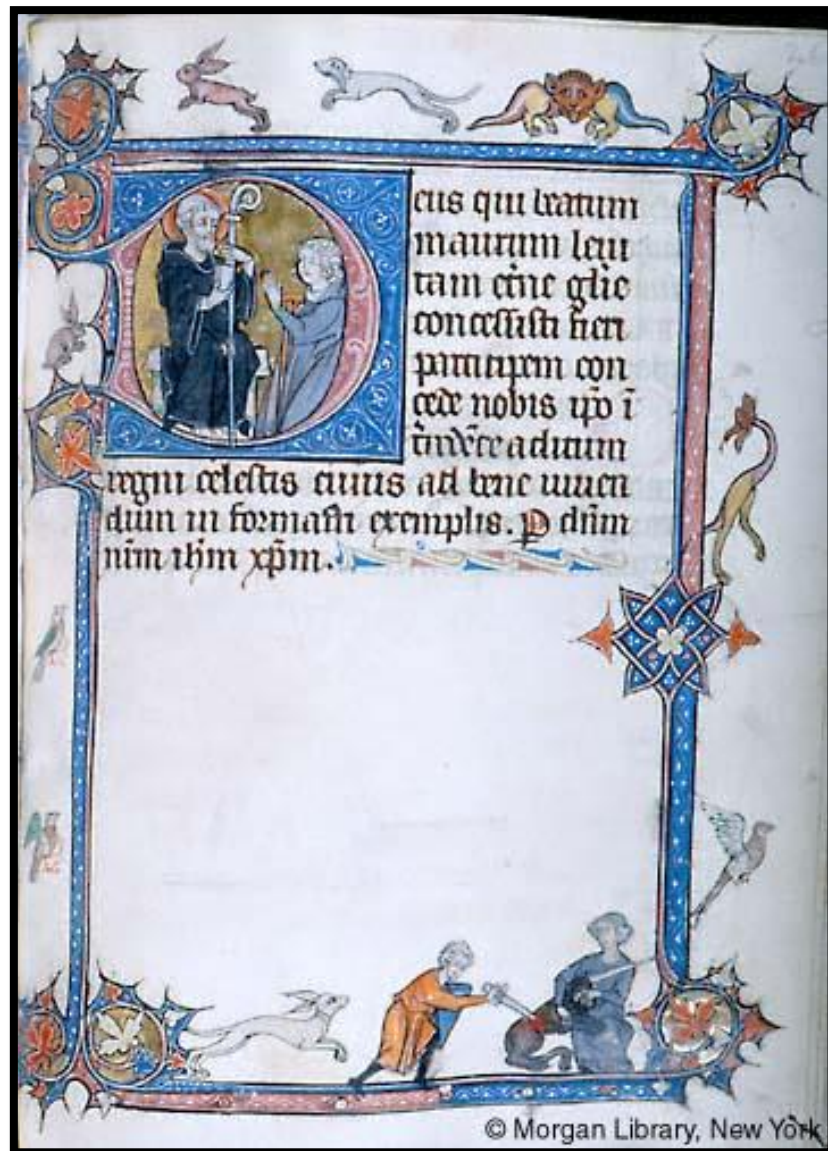 Deus qui beatum
maurum leui
tam et̄ne gl̄ie
concessisti fieri
participem con
cede nobis ip̄o ī
aditum
regni celestis cuius ad bene uiuen
dum in formasti exemplis. P dn̄m
nr̄m ih̄m xp̄m.
© Morgan Library, New York